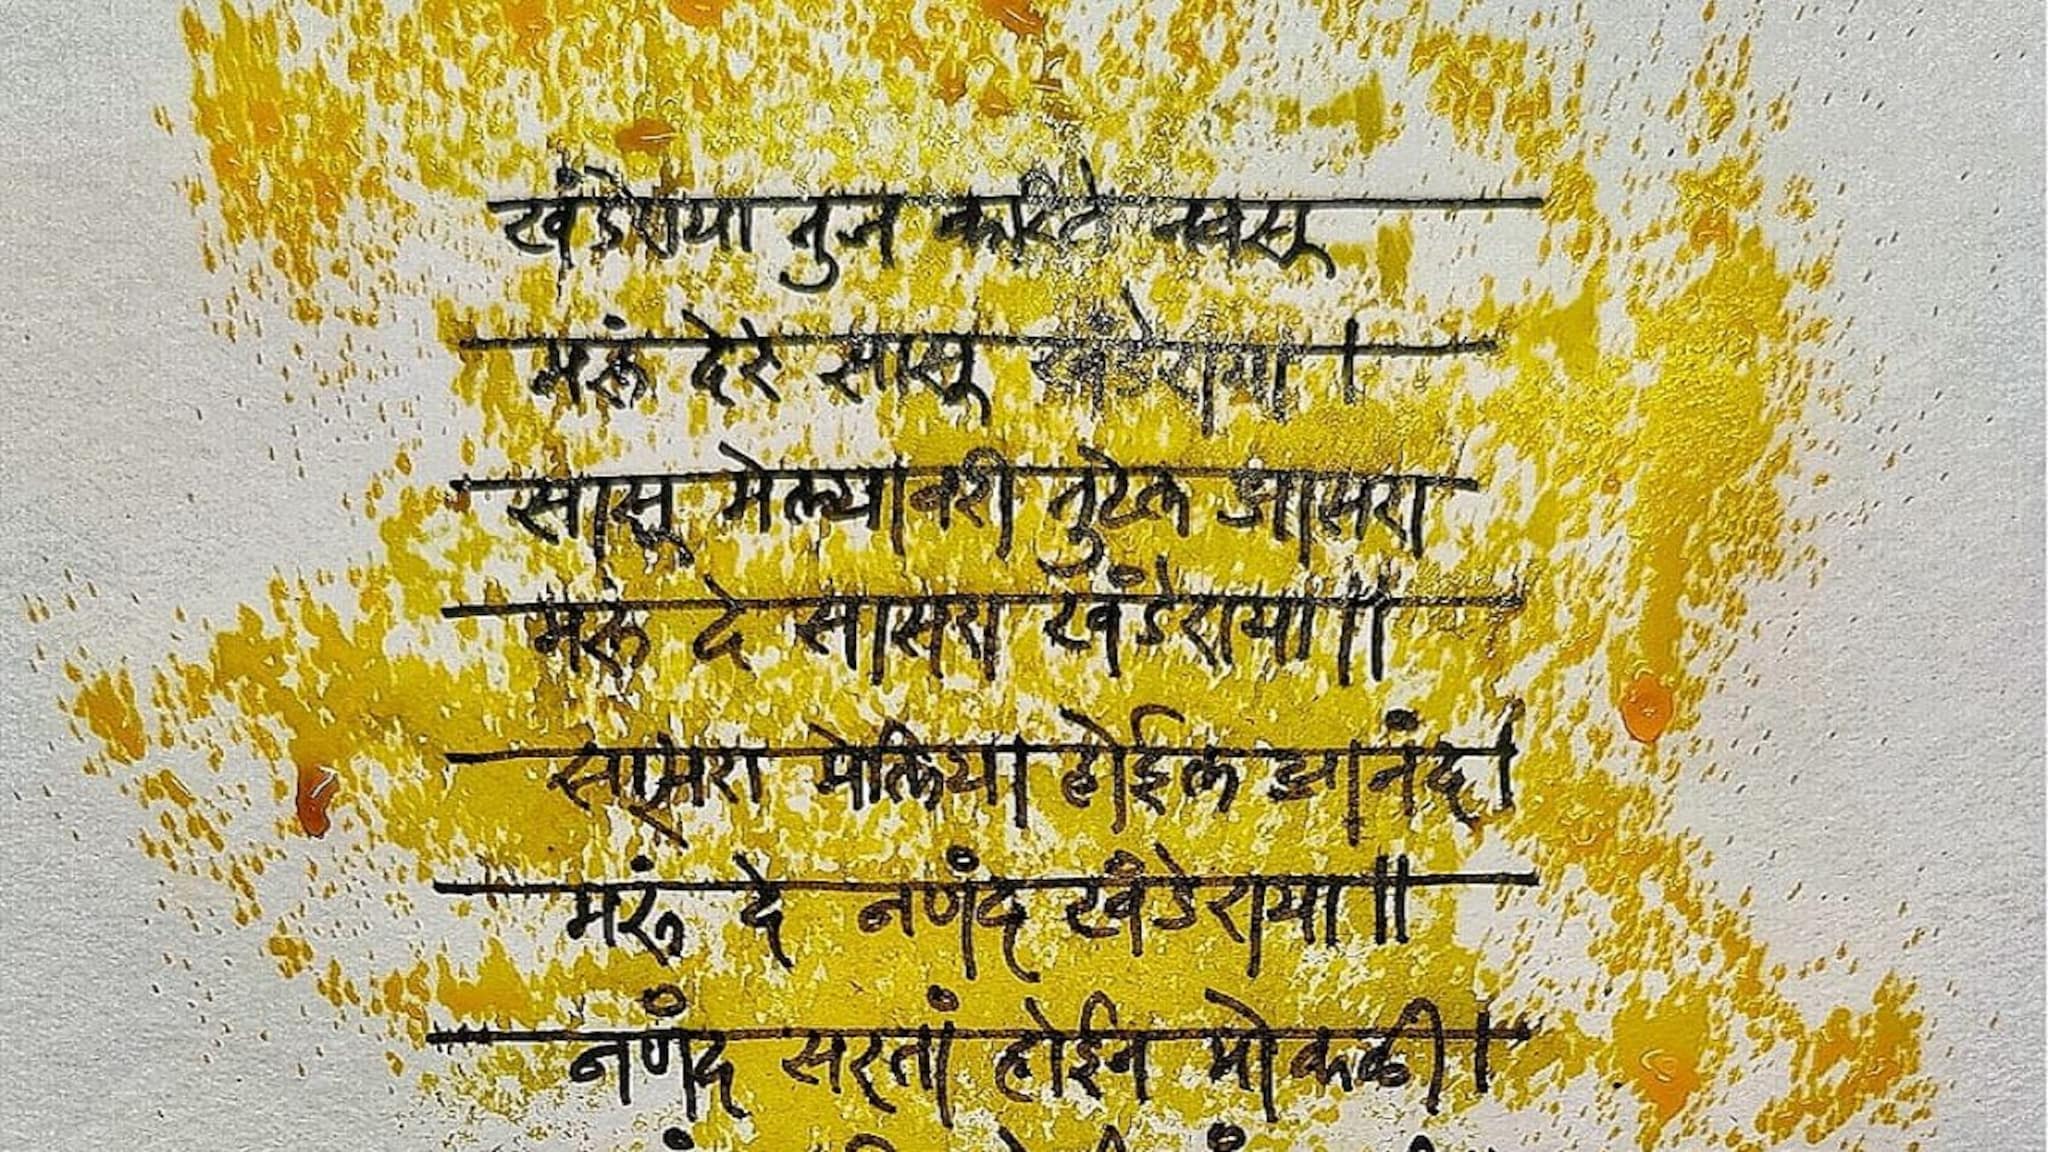 खंडेराया तुज करिते नवसू
मरूं देरे सासू खंडेराया ।
सासू मेल्यावरी तुटेल आसरा
मरूं दे सासरा खंडेराया ॥
सासरा मेलिया होईल आनंद ।
मरूं दे नणंद खंडेराया ॥
नणंद सरतां होईन मोकळी ।